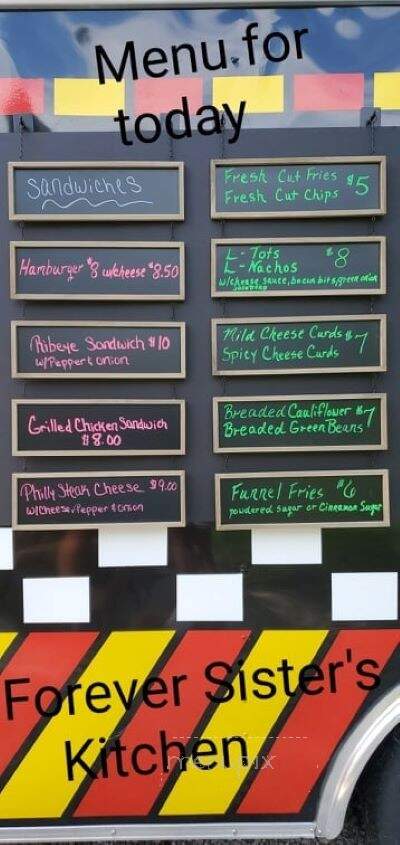 Menu for
today
Sandwiches
Hamburger $8 w/cheese $8.50
Ribeye Sandwich $10
w/Pepper & onion
Grilled Chicken Sandwich
$8.00
Philly Steak Cheese $9.00
w/Cheese, Pepper & Onion
Fresh Cut Fries $5
Fresh Cut Chips
L-Tots $8
L-Nachos
w/cheese sauce, bacon bits, green onion
Mild Cheese Curds $7
Spicy Cheese Curds
Breaded Cauliflower $7
Breaded Green Beans
Funnel Fries $6
powdered sugar or Cinnamon Sugar
Forever Sister's
Kitchen